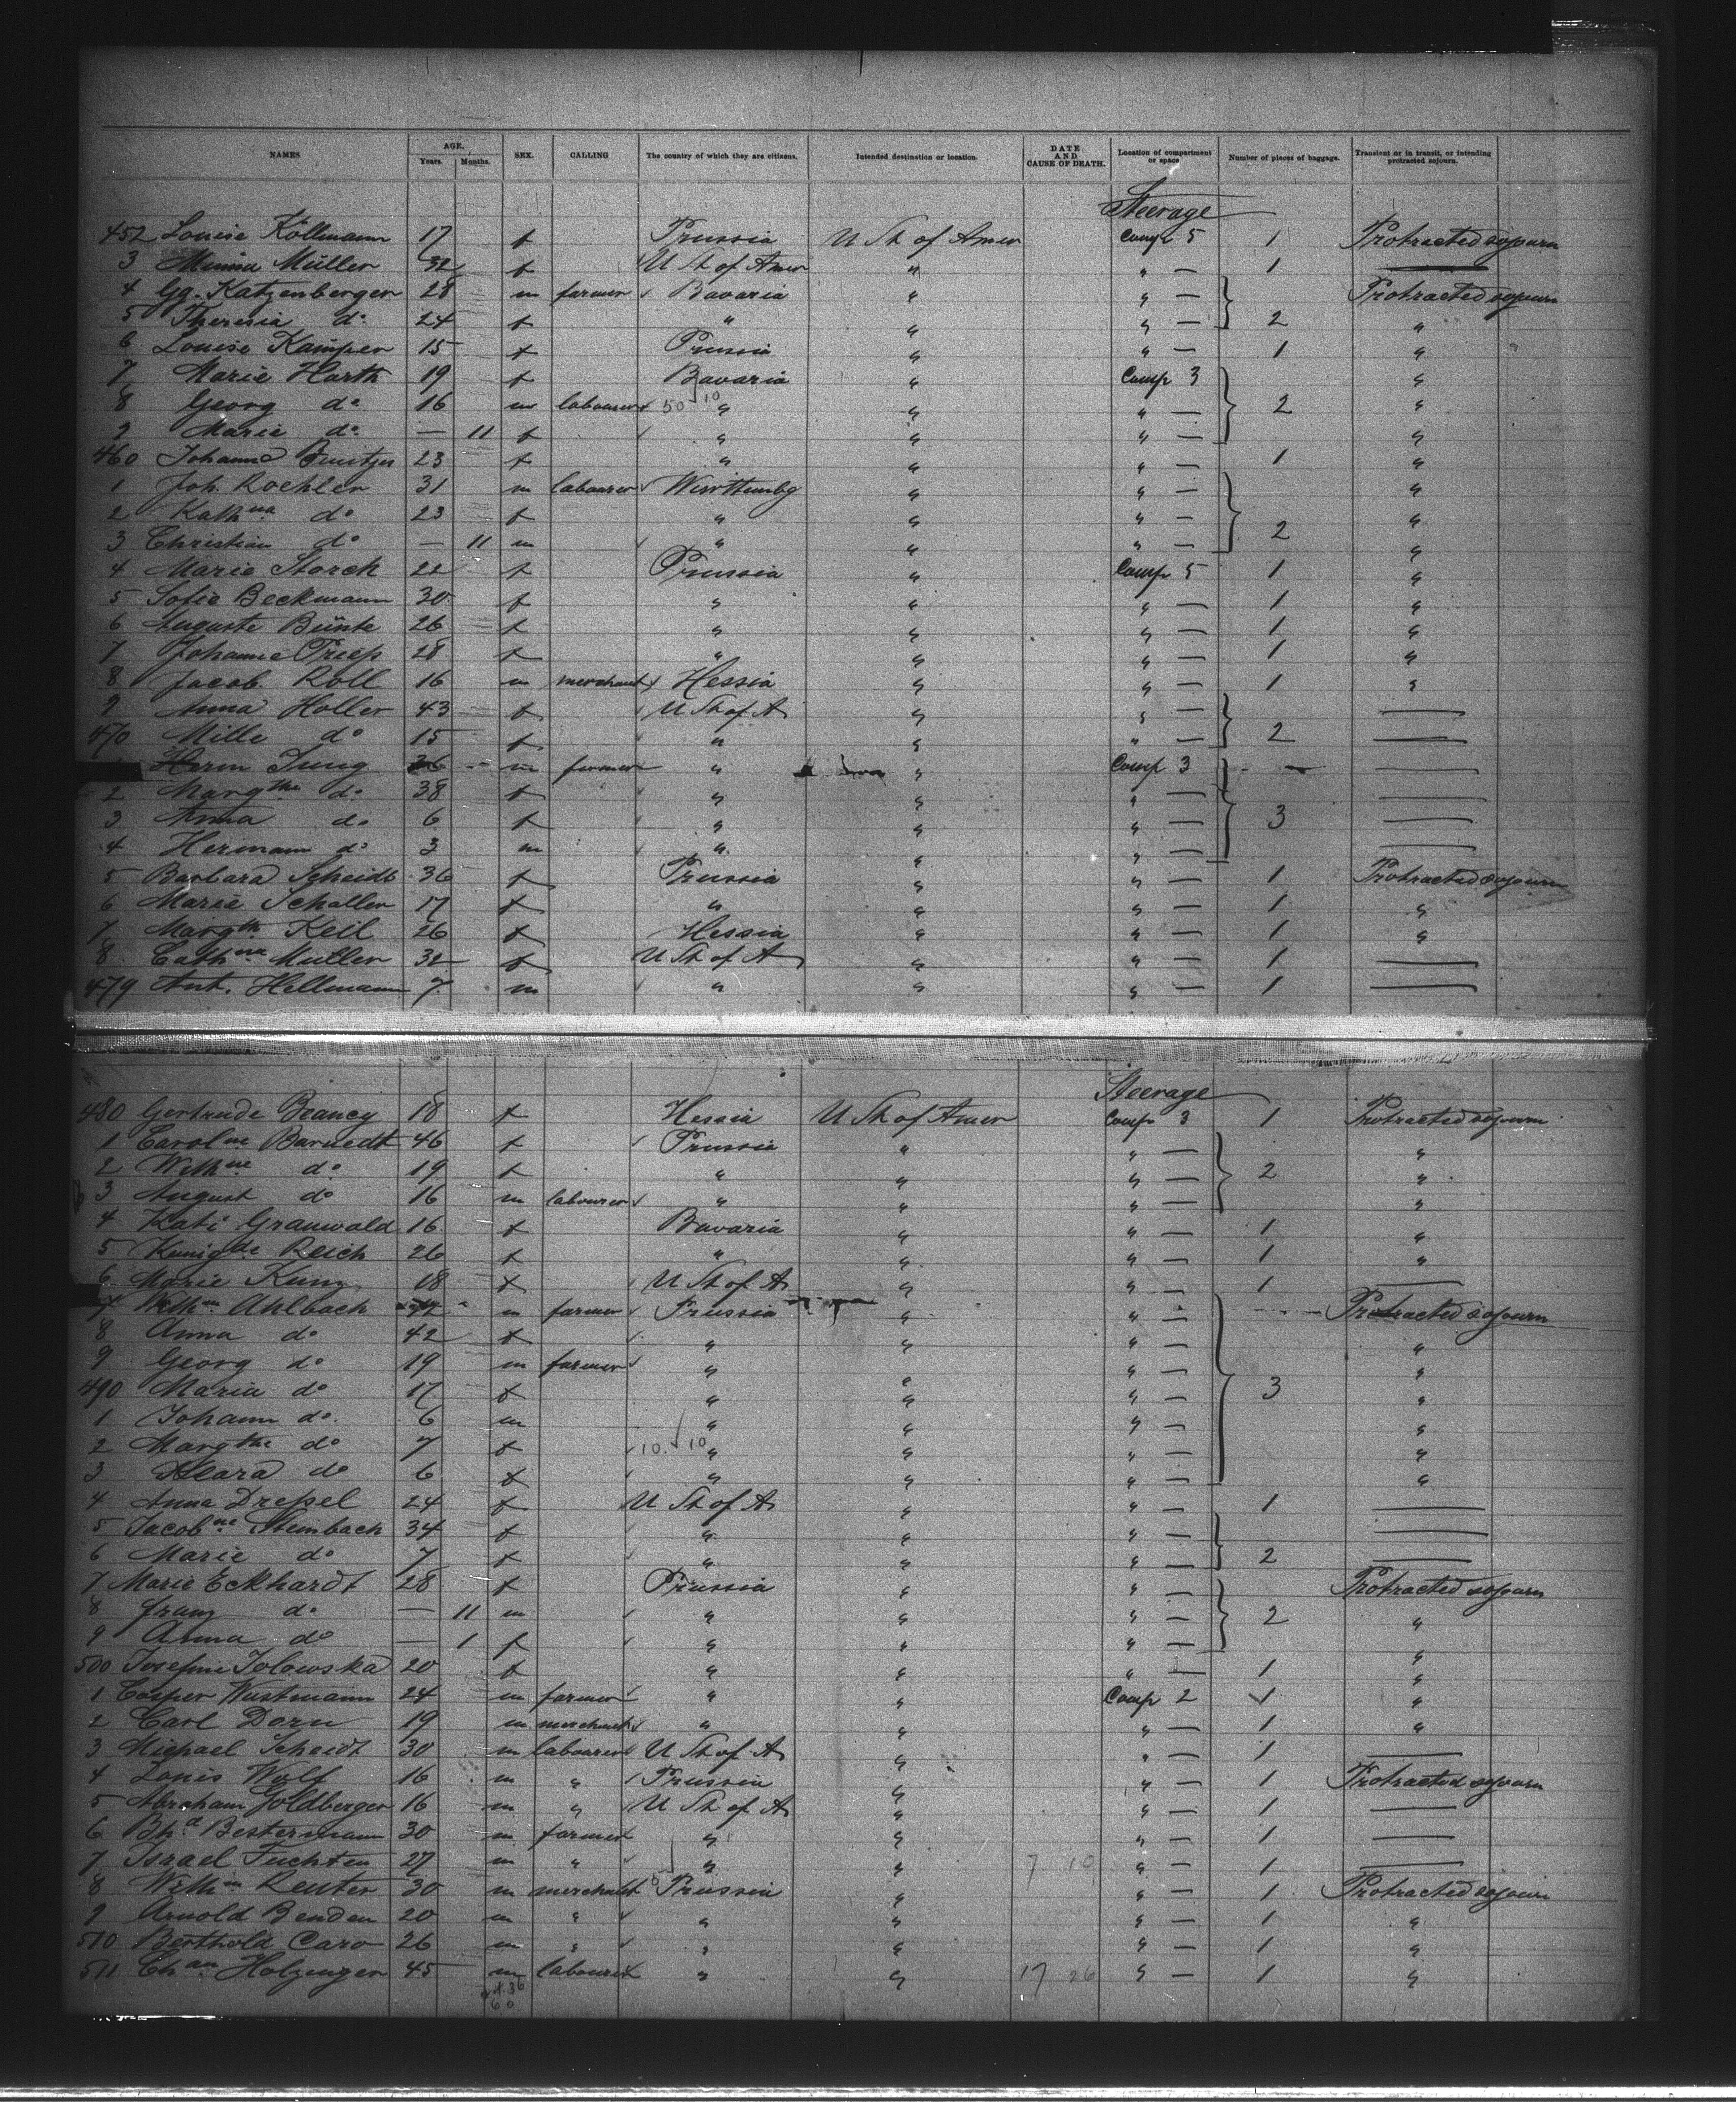 NAMES AGE. Years. Months. SEX. CALLING The country of which they are citizens. Intended destination or location. DATE AND CAUSE OF DEATH. Location of compartment or space Number of pieces of baggage. Transient or in transit, or intending protracted sojourn.
Steerage
452 Louise Kollmann 17 f Prussia U St of Amer Comp 5 1 Protracted sojourn
3 Minna Müller 32 f U St of Amer " " — 1 —
4 Gg. Katzenberger 28 m farmer Bavaria " " — Protracted sojourn
5 Theresia do 24 f " " " — 2 "
6 Louise Kamper 15 f Prussia " " — 1 "
7 Marie Harth 19 f Bavaria " Comp 3 "
8 Georg do 16 m labourer 50 10 " " " — 2 "
9 Marie do — 11 f " " " — "
460 Johanna 23 f " " " — 1 "
1 Joh. Koehler 31 m labourer Württembg " " — "
2 Kathna do 23 f " " " — "
3 Christian do — 11 m " " " — 2 "
4 Marie Storch 22 f Prussia " Comp 5 1 "
5 Sofie Beckmann 30 f " " " — 1 "
6 Auguste Bünte 26 f " " " — 1 "
7 Johanne Priep 28 f " " " — 1 "
8 Jacob Roll 16 m merchant Hessia " " — 1 "
9 Anna Holler 43 f U St of A " " — —
470 Mille do 15 f " " " — 2 —
Herm Jung 36 m farmer " " Comp 3 —
2 Margthe do 38 f " " " — —
3 Anna do 6 f " " " — 3 —
4 Hermann do 3 m " " " — —
5 Barbara Scheidt 36 f Prussia " " — 1 Protracted sojourn
6 Marie Schaller 17 f " " " — 1 "
7 Margth Keil 26 f Hessia " " — 1 "
8 Cathna Muller 32 f U St of A " " — 1 —
479 Ant. Hellmann 7 m " " " — 1 —
Steerage
480 Gertrude Beancy 18 f Hessia U St of Amer Comp 3 1 Protracted sojourn
1 Carolne Barnedt 46 f Prussia " " — "
2 Wilhne do 19 f " " " — 2 "
3 August do 16 m labourer " " " — "
4 Kati Granwald 16 f Bavaria " " — 1 "
5 Kunigde Reich 26 f " " " — 1 "
6 Marie Kunz 18 f U St of A " " — 1 —
7 Wilhm Ahlbach m farmer Prussia " " — Protracted sojourn
8 Anna do 42 f " " " — "
9 Georg do 19 m farmer " " " — "
490 Maria do 17 f " " " — 3 "
1 Johann do. 6 m " " " — "
2 Margthe do 7 f 10 10 " " " — "
3 Klara do 6 f " " " — "
4 Anna Drepel 24 f U St of A " " — 1 —
5 Jacobne Steinbach 34 f " " " — —
6 Marie do 7 f " " " — 2 —
7 Marie Eckhardt 28 f Prussia " " — Protracted sojourn
8 Franz do — 11 m " " " — 2 "
9 Anna do — 1 f " " " — "
500 Josefine Jolowska 20 f " " " — 1 "
1 Casper Wustmann 24 m farmer " " Comp 2 1 "
2 Carl Dorn 19 m merchant " " " — 1 "
3 Michael Scheidt 30 m labourer U St of A " " — 1 —
4 Louis Wolf 16 m " Prussia " " — 1 Protracted sojourn
5 Abraham Goldberger 16 m " U St of A " " — 1 —
6 Bhd Bestermann 30 m farmer " " " — 1 —
7 Israel Fuchten 27 m " " " 7 10 " — 1 —
8 Wilhm Reuter 30 m merchant Prussia " " — 1 Protracted sojourn
9 Arnold Benden 20 m " " " " — 1 "
510 Berthold Caro 26 m " " " " — 1 "
511 Chan Holzinger 45 m labourer " " 17 26 " — 1 "
60